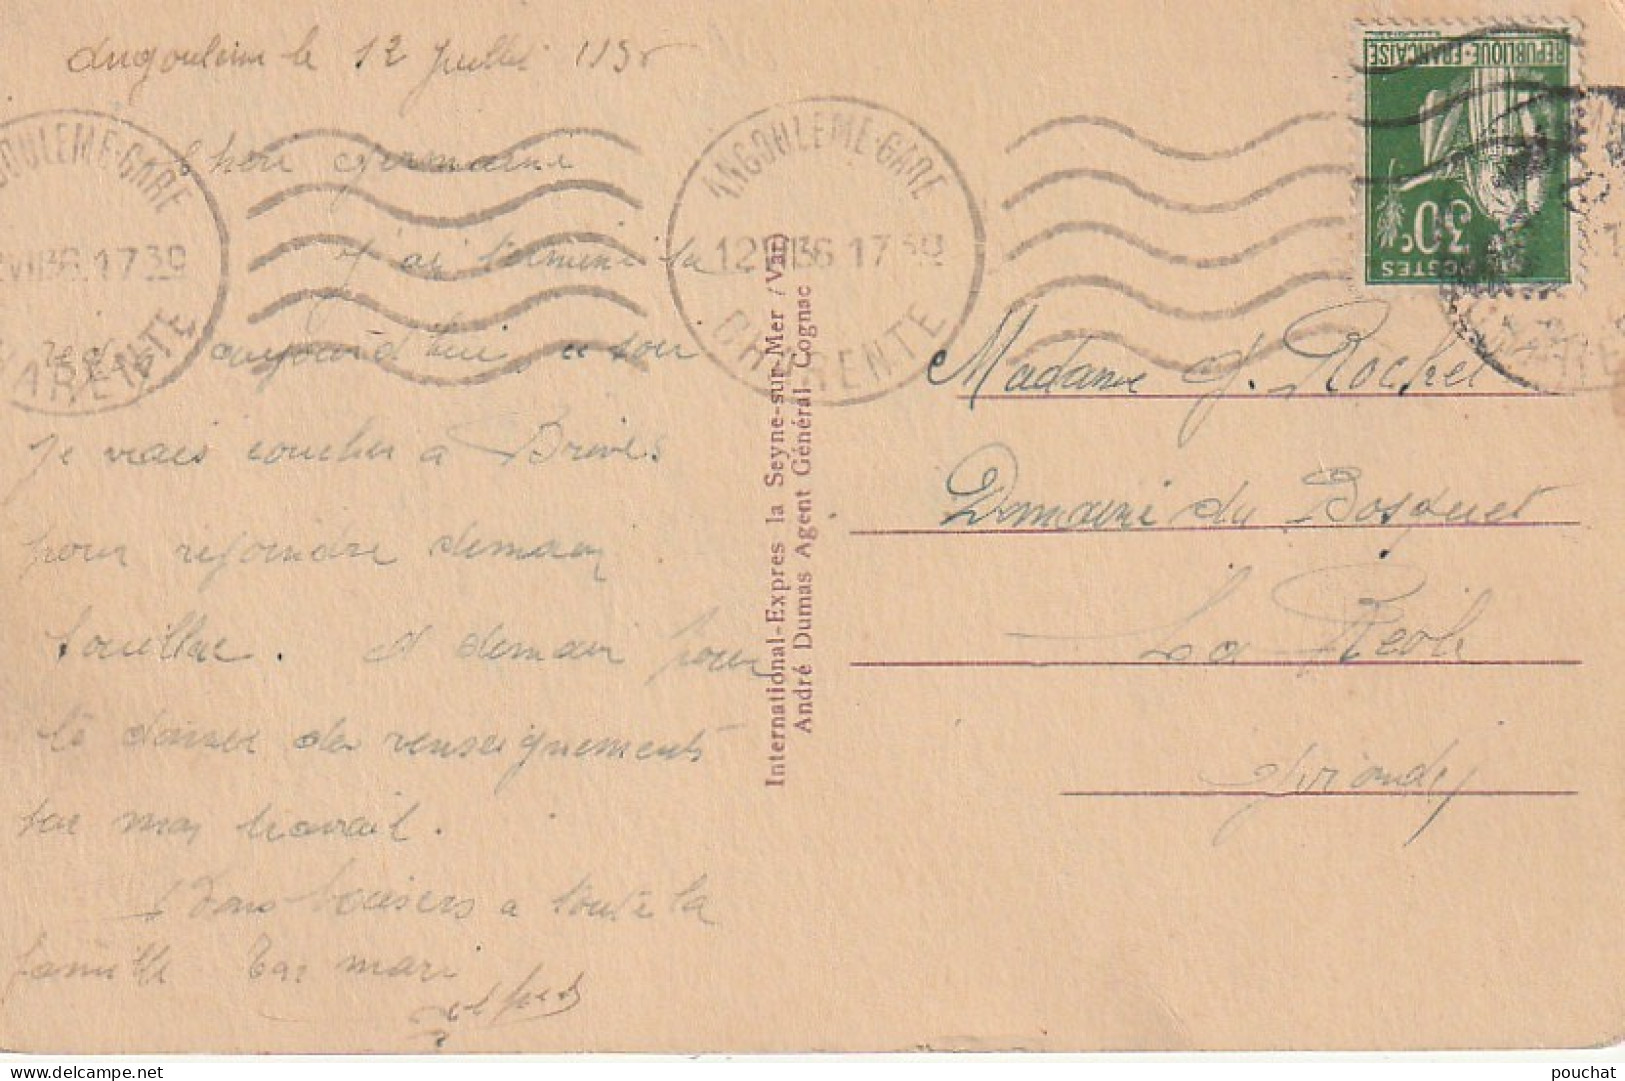 Angoulême le 12 Juillet 1936
Chère Germaine
J'ai terminé la
aujourd'hui ce soir
Je vais coucher à Brives
pour rejoindre demain
Souillac. Et demain pour
te donner des renseignements
sur mon travail.
Bons baisers a toute la
famille Ton mari
Alfred
OULEME-GARE
2 VII 36 17 30
HARENTE
ANGOULEME-GARE
12 VII 36 17 30
CHARENTE
International-Expres la Seyne-sur-Mer (Var)
André Dumas Agent Général Cognac
REPUBLIQUE·FRANÇAISE
30c
POSTES
Madame J. Rochet
Domaine du Bosquet
La Réole
Gironde
delcampe.net
pouchat